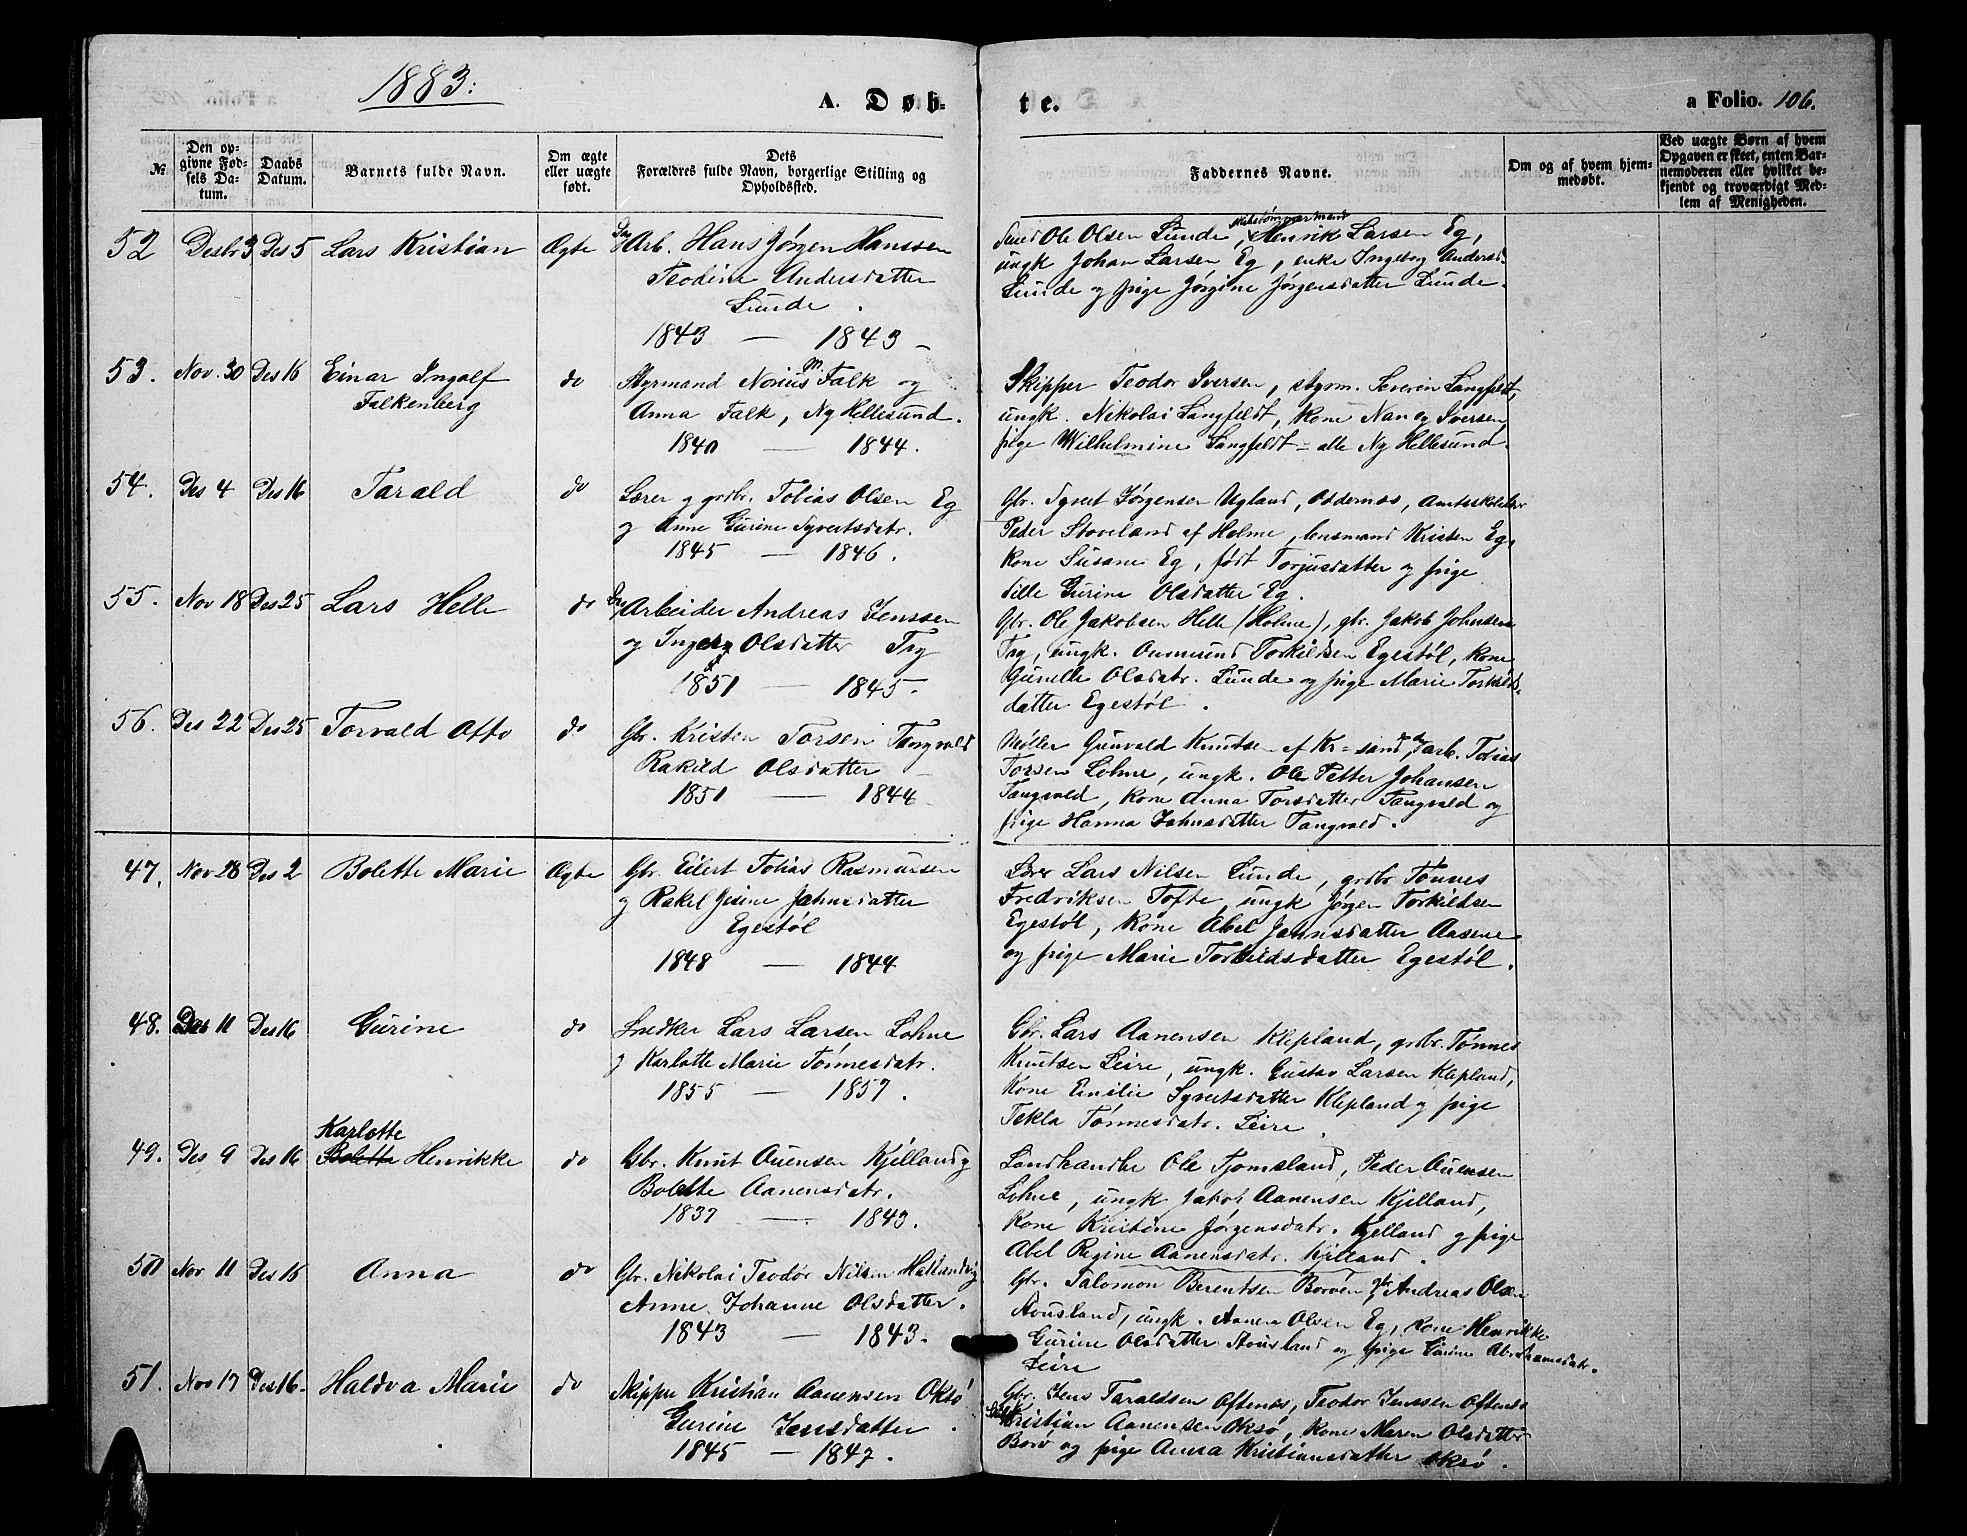 1883.
A. Døb-
te.
a Folio. 106.
№
Den op-
givne Fød-
sels Da-
tum.
Daabs
Datum.
Barnets fulde Navn.
Om ægte
eller uægte
født.
Dets
Forældres fulde Navn, borgerlige Stilling og
Opholdssted.
Faddernes Navne.
Om og af hvem hjem-
medøbt.
Ved uægte Børn af hvem
Opgaven er skeet, enten Bar-
nemoderen eller hvilket be-
kjendt og troværdigt Med-
lem af Menigheden.
52 Desbr 3 Des 5 Lars Kristian Ægte Dag Arb. Hans Jørgen Hanssen
Teodine Andersdatter
Lunde.
1843 — 1843 —
Ole Olsen Lunde, Henrik Larsen Eg,
ungk Johan Larsen Eg, enke Ingeborg Andersd.
Lunde og pige Jørgine Jørgensdatter Lunde.
53. Nov. 30 Des 16 Einar Ingolf
Falkenberg
do Styrmand Norius M. Falk og
Anna Falk, Ny Hellesund.
1840 — 1844.
Skipper Teodor Iversen, styrm. Severin Langfeldt,
ungk. Nikolai Langfeldt, kone Nancy Iversen,
pige Wilhelmine Langfeldt - alle Ny Hellesund.
54. Des 4 Des 16 Tarald do Lærer g grdbr. Tobias Olsen Eg
g Anne Gurine Syvertsdatr.
1845 — 1846.
Gbr. Syvert Jørgensen Ugland, Oddernes, Amtsskolelærer
Peder Stoveland af Holme, lensmand Kristen Eg,
kone Susane Eg, født Torjusdatter g pige
Sille Gurine Olsdatter Eg.
55. Nov 18 Des 25 Lars Helle do Dag Arbeider Andreas Jenssen
og Ingeborg Olsdatter Try
1851 — 1845.
Gbr. Ole Jakobsen Helle (Holme), gbr. Jakob Johnsen
Try, ungk. Aumund Torkildsen Egestøl, kone
Gunelle Olsdatr. Lunde og pige Marie Torkilds-
datter Egestøl.
56. Des 22 Des 25 Torvald Otto do Gbr. Kristen Torsen Tangvald
Rakild Olsdatter
1851 — 1844
Møller Gunvald Knudsen af Kr-sand, arb. Tobias
Torsen Lohne, ungk. Ole Petter Johansen
Tangvald, kone Anna Torsdatter Tangvald og
pige Hanna Johnsdatter Tangvald.
47. Nov 28 Des 2 Bolette Marie Ægte Gbr. Eilert Tobias Rasmussen
g Rakel Jesine Jahnsdatter
Egestøl
1848 — 1844
Lærer Lars Nilsen Lunde, grdbr Tønnes
Fredriksen Tofte, ungk Jørgen Torkildsen
Egestøl, kone Abel Jahnsdatter Aasene
og pige Marie Torkildsdatter Egestøl.
48. Des 11 Des 16 Gurine do Snedker Lars Larsen Lohne
g Karlotte Marie Tønnesdatr.
1855 — 1857.
Gbr. Lars Aanensen Klepland, grdbr. Tønnes
Knutsen Leire, ungk. Gustav Larsen Klepland,
kone Emilie Syvertsdatter Klepland g pige
Tekla Tønnesdatr. Leire.
Karlotte
49. Des 9 Des 16 Bolette Henrikke do Gbr. Knut Auensen Kjelland g
Bolette Aanensdatr.
1837 — 1843.
Landhandler Ole Tjomsland, Peder Auensen
Lohne, ungk Jakob Aanensen Kjelland,
kone Kristine Jørgensdatr. Kjelland g pige
Abel Regine Aanensdatr. Kjelland.
50 Nov 11 Des 16 Anna do Gbr. Nikolai Teodor Nilsen Hallandvig
Anne Johanne Olsdatter.
1843 — 1843.
Gbr. Salomon Berentsen Borøen, Andreas Olsen
Aousland, ungk. Aanen Olsen Eg, kone Henrikke
Gurine Olsdatter Aousland og pige Gurine Abrahamsdatr.
Leire
51. Nov 17 Des 16. Haldva Marie do Skipper Kristian Aanensen Oksø
Gurine Jensdatter.
1845 — 1847.
Gbr. Jens Taraldsen Aftenes, Teodor Jenssen Aftenes
Kristian Aanensen Oksø, kone Maren Olsdatter
Borø og pige Anna Kristiansdatter Oksø.